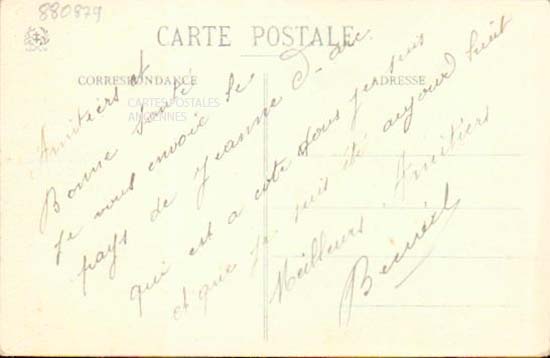 880879
CARTE POSTALE
CORRESPONDANCE
ADRESSE
CARTES POSTALES
ANCIENNES
Amitiers et
Bonne Santé
Je vous envoie le
pays de Jeanne d-arc.
qui est a coté d'ous je suis
et que je suis été aujour d huit
Meilleurs Amitiers